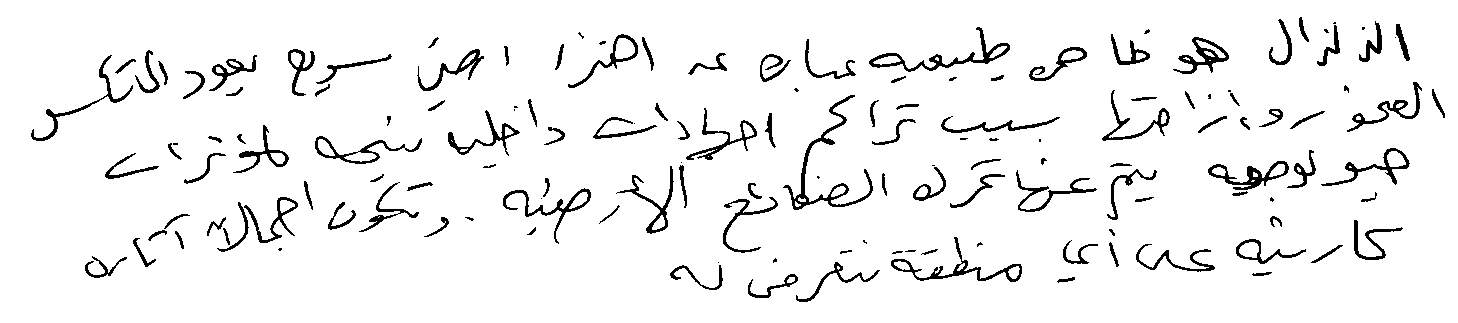 الزلزال هو ظاهرة طبيعية عبارة عن اهتزاز ارضي سريع يعود الى تكسر
الصخور وإزاحتها بسبب تراكم اجهادات داخلية نتيجة لمؤثرات
جيولوجية ينجم عنها تحرك الصفائح الأرضية . وتكون اجمالا آثاره
كارثية على أي منطقة تتعرض له